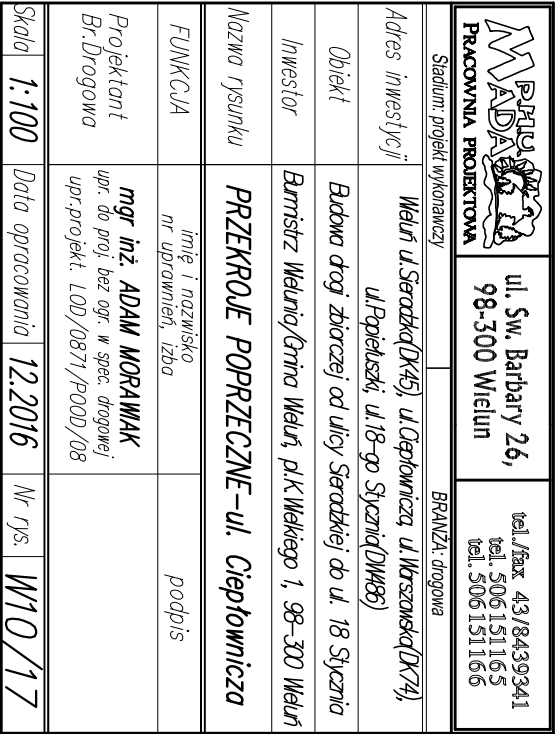 P.H.U.
MADA
PRACOWNIA PROJEKTOWA
ul. Sw. Barbary 26,
98-300 Wielun
tel./fax 43/8439341
tel. 506151165
tel. 506151166
Stadium: projekt wykonawczy
BRANŻA: drogowa
Adres inwestycji
Wieluń ul.Sieradzka(DK45), ul.Ciepłownicza, ul.Warszawska(DK74),
ul.Popiełuszki, ul.18-go Stycznia(DW486)
Obiekt
Budowa drogi zbiorczej od ulicy Sieradzkiej do ul. 18 Stycznia
Inwestor
Burmistrz Wielunia/Gmina Wieluń, pl.K.Wielkiego 1, 98-300 Wieluń
Nazwa rysunku
PRZEKROJE POPRZECZNE-ul. Ciepłownicza
FUNKCJA
imię i nazwisko
nr uprawnień, izba
podpis
Projektant
Br.Drogowa
mgr inż ADAM MORAWIAK
upr. do proj. bez ogr. w spec. drogowej
upr.projekt. LOD/0871/POOD/08
Skala
1:100
Data opracowania
12.2016
Nr rys.
W10/17